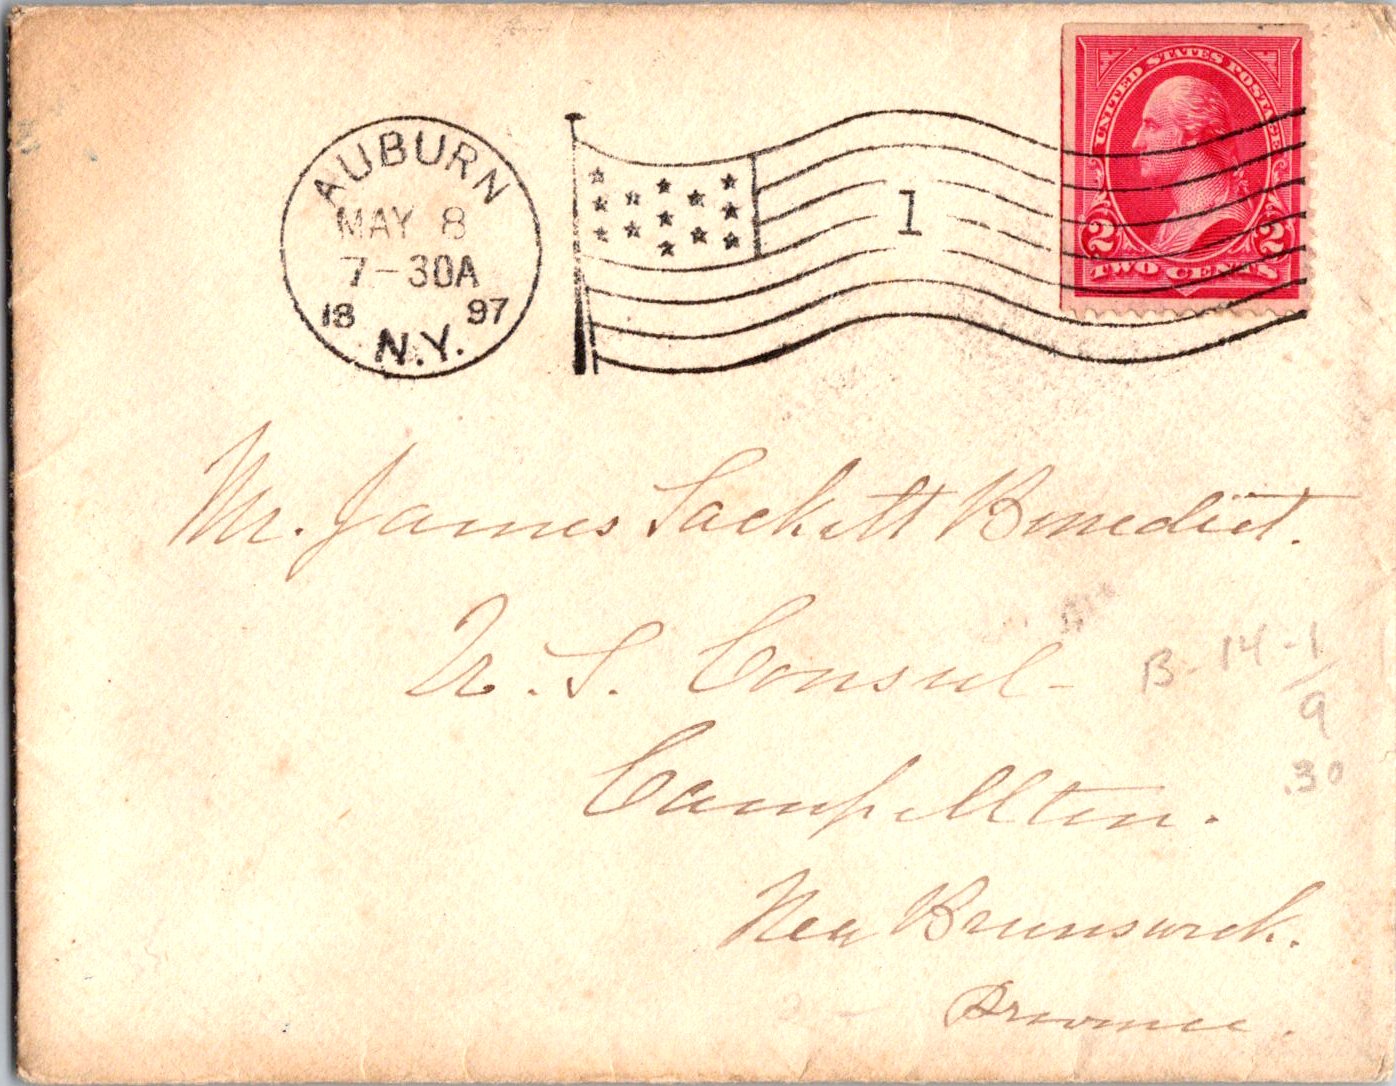 AUBURN
MAY 8
7-30A
18 97
N.Y.
1
UNITED STATES POSTAGE
2 2
TWO CENTS
Mr. James Sackett Benedict.
U. S. Consul-
Campellton.
New Brunswick.
Province.
B-14-1/9
.30